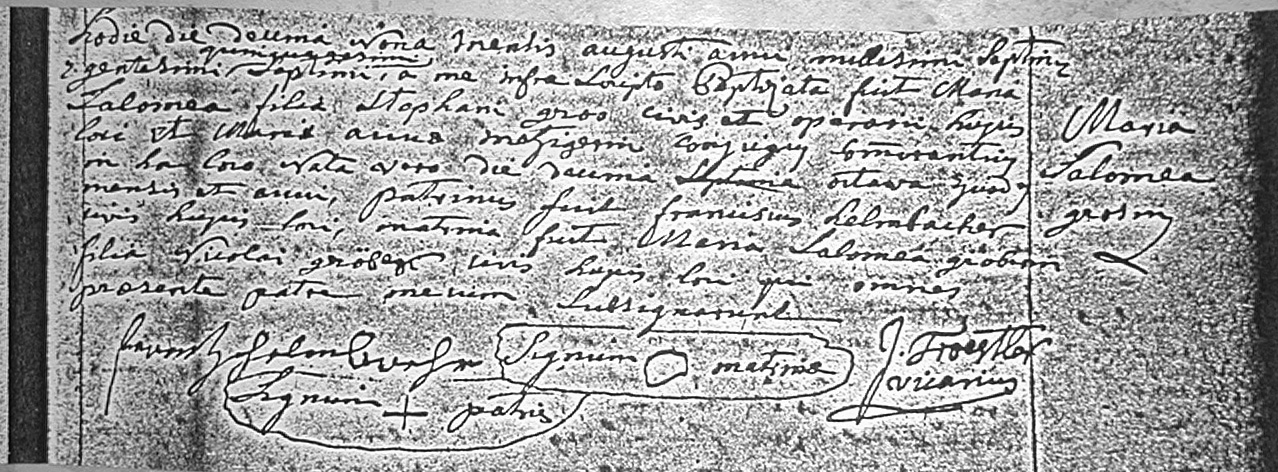 hodie die decima nona mensis augusti anni millesimi Septin
quinquagesimi
gentesimi Septimi, a me infra Scripto Baptizata fuit Maria
Salomea filia Stephani gros civis et operarii hujus
loci et Maria anna metzgerin conjugum commorantium
in hac loco Nata vero die decima Septima octava ejusdem
mensis et anni, patrinus fuit franciscus helmbacher
civis hujus loci, matrina fuit Maria Salomea gröberin
filia Nicolai gröber civis hujus loci qui omnes
presente patre mecum Subsignarunt
Maria
Salomea
grosin
Signum matrine
Signum + patris
J. Froestler
vicarius